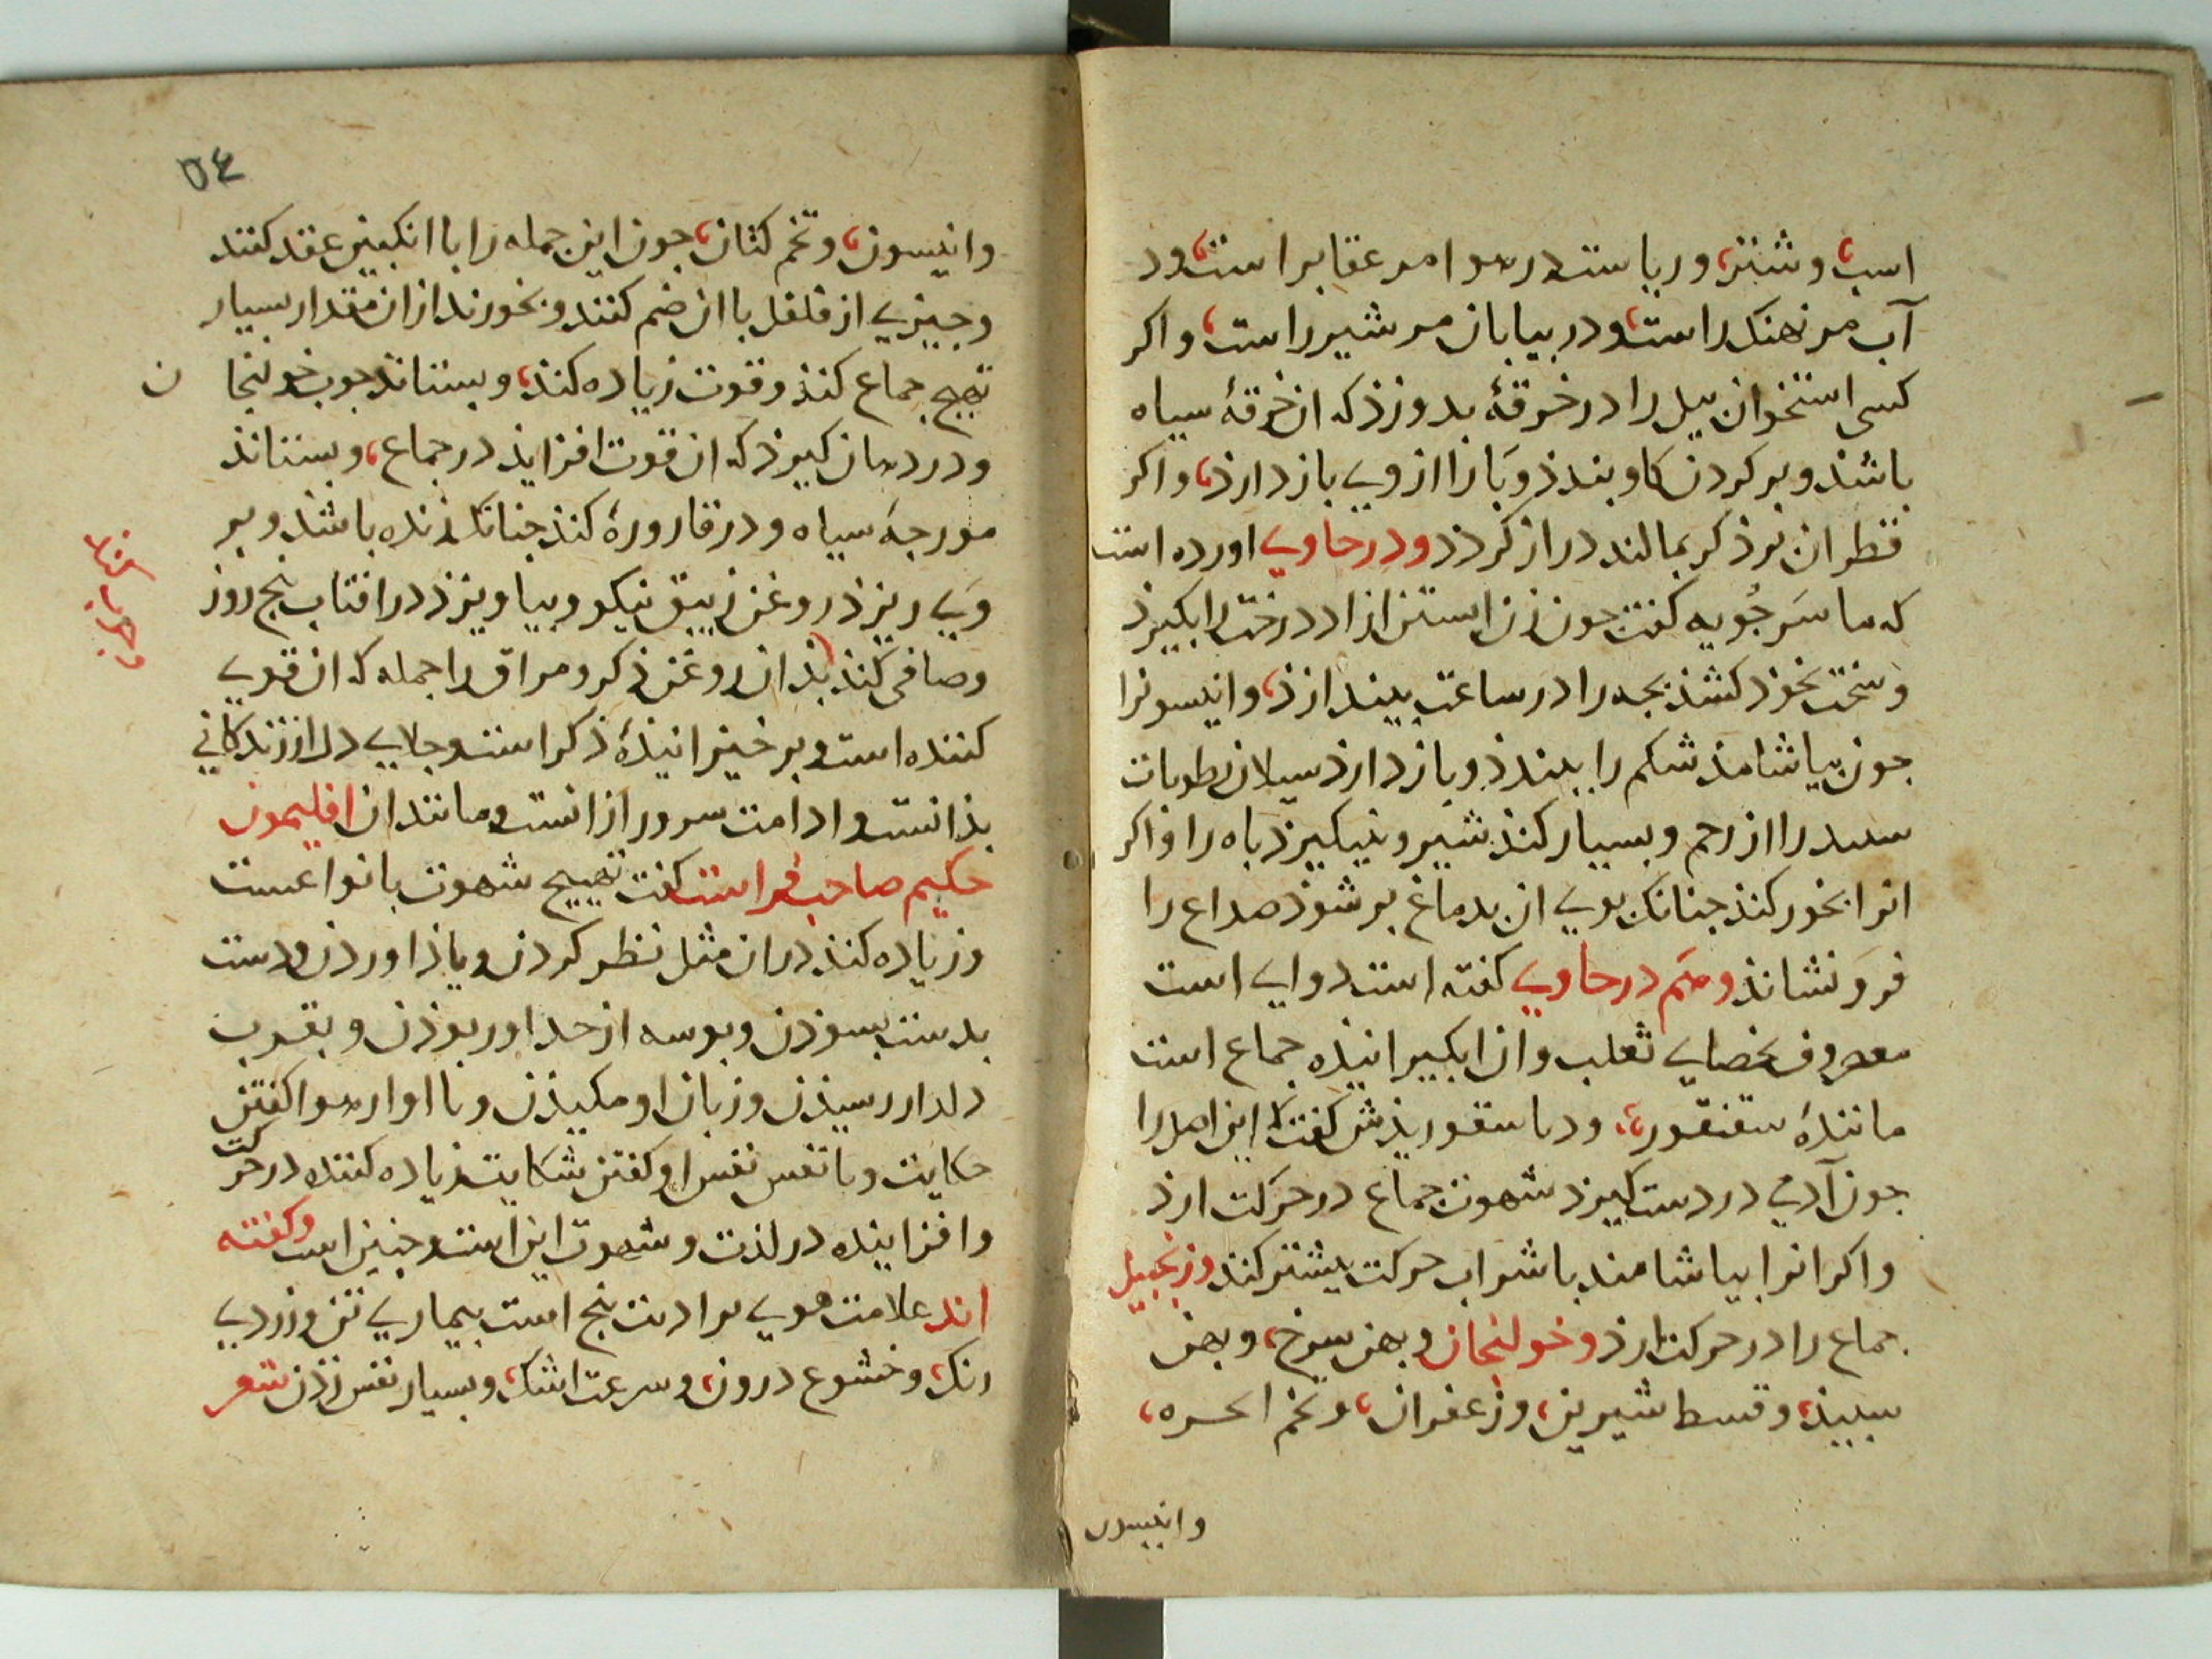 اسب، وشتر، وریاست در هوا مر عقابر است، ود
آب مر نهنک راست، ودر بیابان مر شیر راست، واکر
کسی استخوان پیل را در خرقهٔ بدوزذ که ان خرقهٔ سیاه
باشذ وبر کردن کاو بندذ وبا را از وی باز دارذ، واکر
قطران بر ذکر بمالند دراز کردد ودر حاوی اورده است
که ماسَرجُویه کفت جون زن ابستن ازاد درخت را بکیرذ
وسخت بخورد کشذ بجه را در ساعت بیندازذ، وانیسونرا
جون بیاشامذ شکم را ببندذ وباز دارذ سیلان رطوبات
سبید را از رحم وبسیار کنذ شیر ونیکیزذ باه را واکر
انرا بخور کنذ جنانک بوی ان بدماغ بر شوذ صداع را
فرو نشانذ وهم در حاوی کفته است دوایی است
معروف بخصای ثعلب وان انکیزانیذه جماع است
مانندهٔ سقنقور، ودیاسقوریذش کفت که این اصل را
جون آدمی در دست کیرذ شهوت جماع در حرکت ارذ
واکر انرا بیاشامند با شراب حرکت بیشتر کند وزنجبیل
جماع را در حرکت ارذ وخولنجان وبهمن سرخ، وبهمن
سبیذ، وقسط شیرین، وزعفران، وتخم انجره،
وانیسون
٥٤
وانیسون، وتخم کتان، جون این جمله را با انکبین عقد کنند
وجیزی از فلفل با ان ضم کنند وبخورند ازان مقدار بسیار
تهیج جماع کنذ وقوت زیاده کنذ، وبستانذ جوب خولنجا ن
ودر دهان کیرذ که ان قوت افزایذ در جماع، وبستانذ
مورجهٔ سیاه ودر قارورهٔ کنذ جنانک زنده باشذ وبر
وی ریزذ روغن زیبق نیکو وبیاویزذ در افتاب بنج روز
وصافی کنذ بذان روغن ذکر ومراق را جمله که ان قوی
کننده است وبر خیزانیذهٔ ذکر است وجلای دل از زندکانی
بذانست وادامت سرور ازانست ومانند ان افلیمون
حکیم صاحب فراست کفت تهییج شهوت بانواعست
وزیاده کنذ دران مثل نظر کردن ویاذ اوردن ودست
بدست بسوذن وبوسه از حد اور بوذن وبقرب
دلدار رسیذن وزبان او مکیذن وبا او از هوا کفتن
حکایت وبا نفس نفس او کفتن شکایت زیاده کننده در حرکت
وافزاینده در لذت وشهوت این است وجنین است وکفته
اند علامت هوی بر ادمت بنج است بیماری تن وزردی
رنک، وخشوع درون، وسرعت اشک، وبسیار نفس زذن شعر